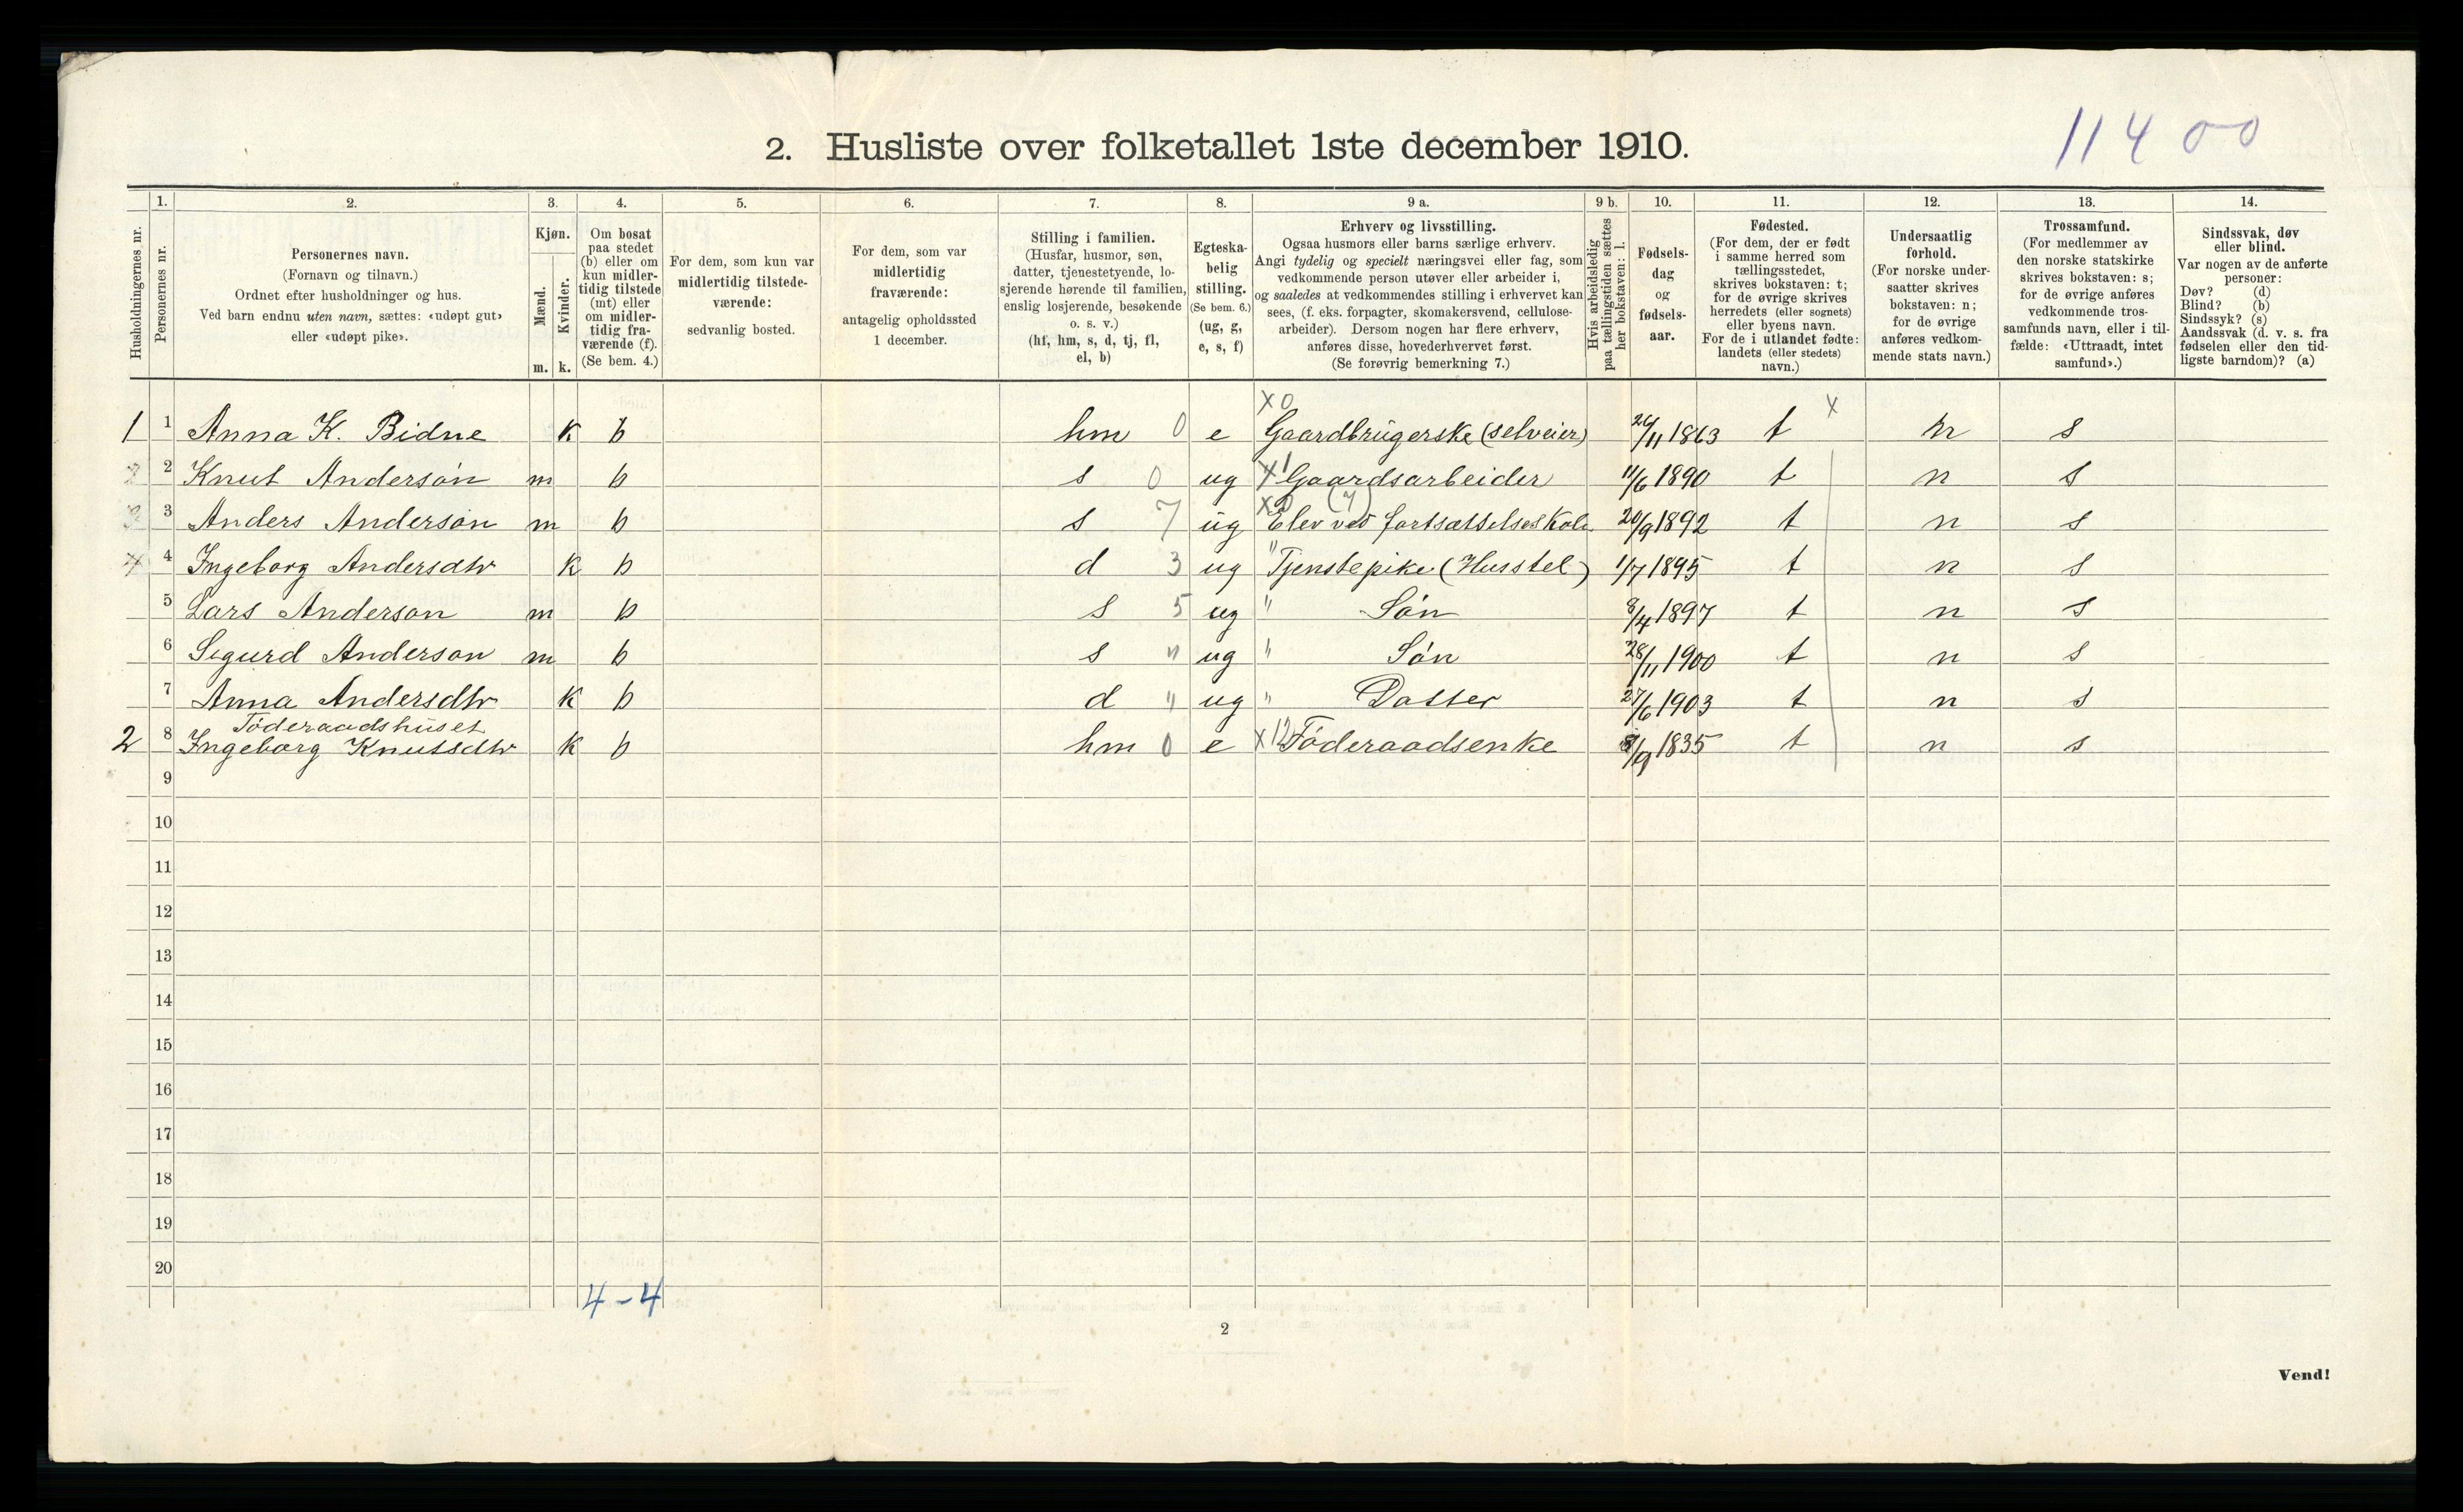 11400
2. Husliste over folketallet 1ste december 1910.
Husholdningernes nr.
1.
Personernes nr.
2.
Personernes navn.
(Fornavn og tilnavn.)
Ordnet efter husholdninger og hus.
Ved barn endnu uten navn, sættes: «udøpt gut»
eller «udøpt pike».
3.
Kjøn.
Mænd. Kvinder.
m. k.
4.
Om bosat
paa stedet
(b) eller om
kun midler-
tidig tilstede
(mt) eller
om midler-
tidig fra-
værende (f).
(Se bem. 4.)
5.
For dem, som kun var
midlertidig tilstede-
værende:
sedvanlig bosted.
6.
For dem, som var
midlertidig
fraværende:
antagelig opholdssted
1 december.
7.
Stilling i familien.
(Husfar, husmor, søn,
datter, tjenestetyende, lo-
sjerende hørende til familien,
enslig losjerende, besøkende
o. s. v.)
(hf, hm, s, d, tj, fl,
el, b)
8.
Egteska-
belig
stilling.
(Se bem. 6.)
(ug, g,
e, s, f)
9 a.
Erhverv og livsstilling.
Ogsaa husmors eller barns særlige erhverv.
Angi tydelig og specielt næringsvei eller fag, som
vedkommende person utøver eller arbeider i,
og saaledes at vedkommendes stilling i erhvervet kan
sees, (f. eks. forpagter, skomakersvend, cellulose-
arbeider). Dersom nogen har flere erhverv,
anføres disse, hovederhvervet først.
(Se forøvrig bemerkning 7.)
9 b.
Hvis arbeidsledig
paa tællingstiden sættes
her bokstaven: l.
10.
Fødsels-
dag
og
fødsels-
aar.
11.
Fødested.
(For dem, der er født
i samme herred som
tællingsstedet,
skrives bokstaven: t;
for de øvrige skrives
herredets (eller sognets)
eller byens navn.
For de i utlandet fødte:
landets (eller stedets)
navn.)
12.
Undersaatlig
forhold.
(For norske under-
saatter skrives
bokstaven: n;
for de øvrige
anføres vedkom-
mende stats navn.)
13.
Trossamfund.
(For medlemmer av
den norske statskirke
skrives bokstaven: s;
for de øvrige anføres
vedkommende tros-
samfunds navn, eller i til-
fælde: «Uttraadt, intet
samfund».)
14.
Sindssvak, døv
eller blind.
Var nogen av de anførte
personer:
Døv? (d)
Blind? (b)
Sindssyk? (s)
Aandssvak (d. v. s. fra
fødselen eller den tid-
ligste barndom)? (a)
X 0 X
1 1 Anna K. Bidne k b hm 0 e Gaardbrugerske (selveier) 26/11 1863 t n s
2 2 Knut Anderson m b s 0 ug X 1 Gaardsarbeider 11/6 1890 t n s
X 0 (7)
3 3 Anders Anderson m b s 7 ug Elev ved fortsættelseskole 20/9 1892 t n s
4 4 Ingeborg Andersdtr k b d 3 ug " Tjenstepike (Husstel) 1/7 1895 t n s
5 Lars Anderson m b s 5 ug " Søn 8/4 1897 t n s
6 Sigurd Anderson m b s " ug " Søn 28/11 1900 t n s
7 Anna Andersdtr k b d " ug " Datter 27/6 1903 t n s
Føderaadshuset
2 8 Ingeborg Knutsdtr k b hm 0 e X 12 Føderaadsenke 8/9 1835 t n s
9
10
11
12
13
14
15
16
17
18
19
20
4-4
2
Vend!